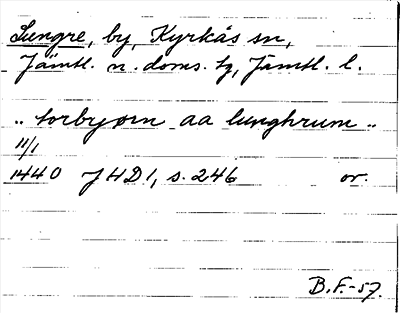 Lungre, by, Kyrkås sn,
Jämtl. n. doms. tg, Jämtl. l.
„ torbyørn aa lunghrum „
11/1
1440 JHD 1, s. 246 or.
B.F.-57.